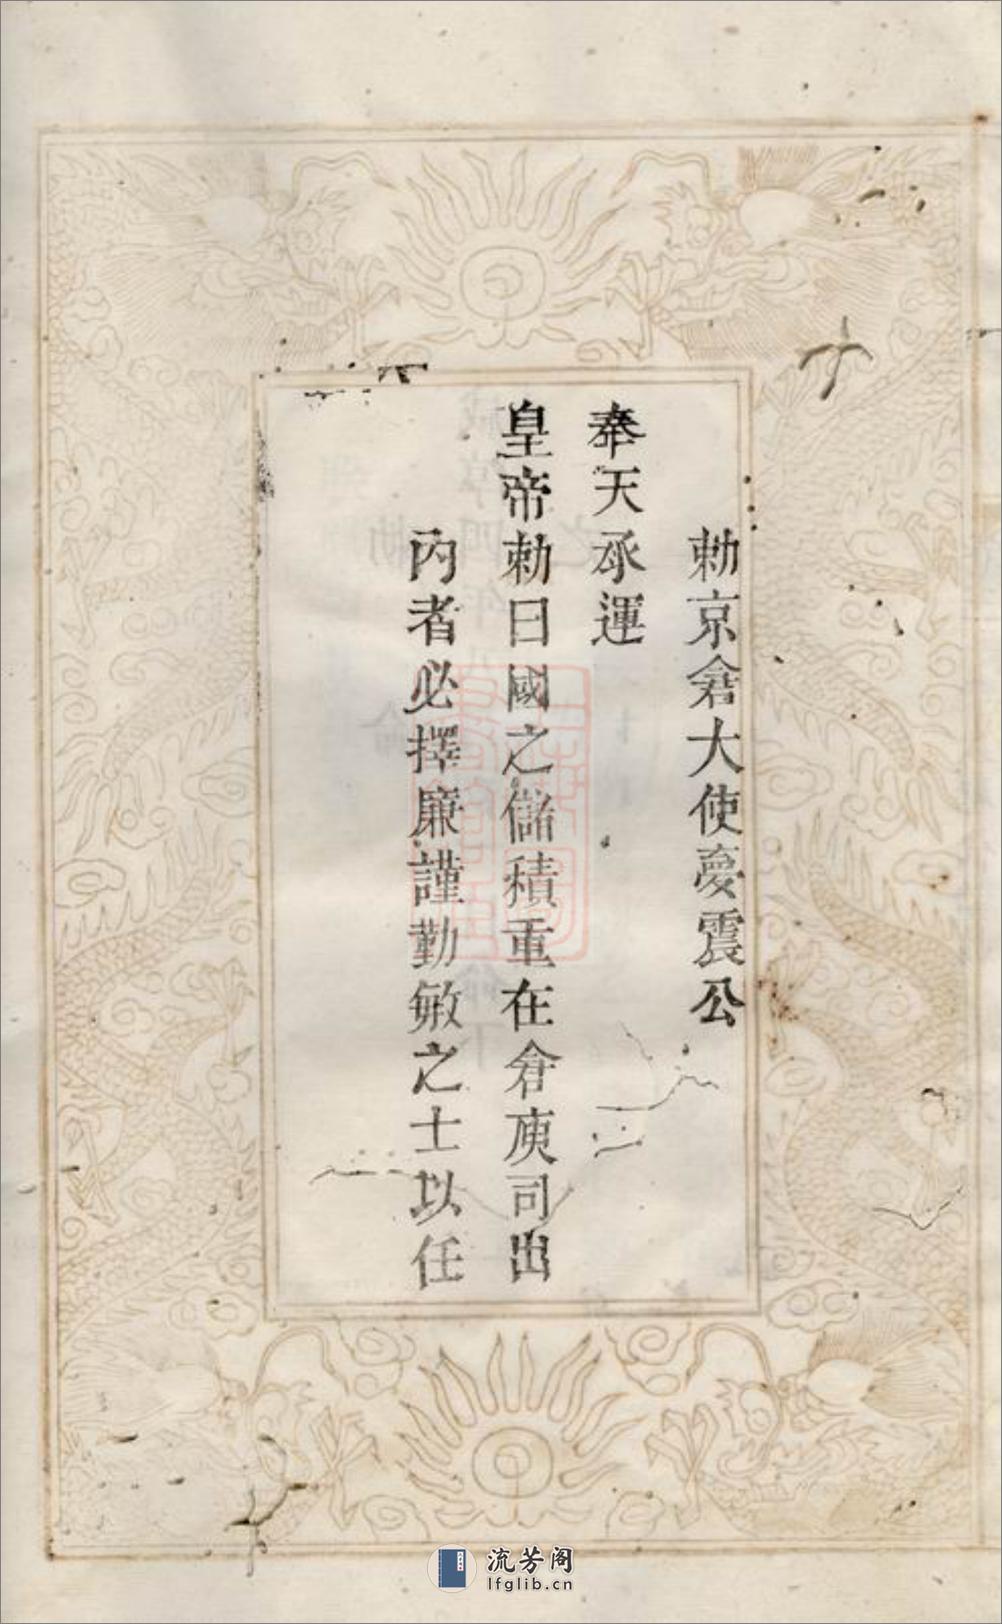 勅京倉大使夢震公
奉天承運
皇帝勅曰國之儲積重在倉庾司出
內者必擇廉謹勤敏之士以任
流芳阁
lfglib.cn